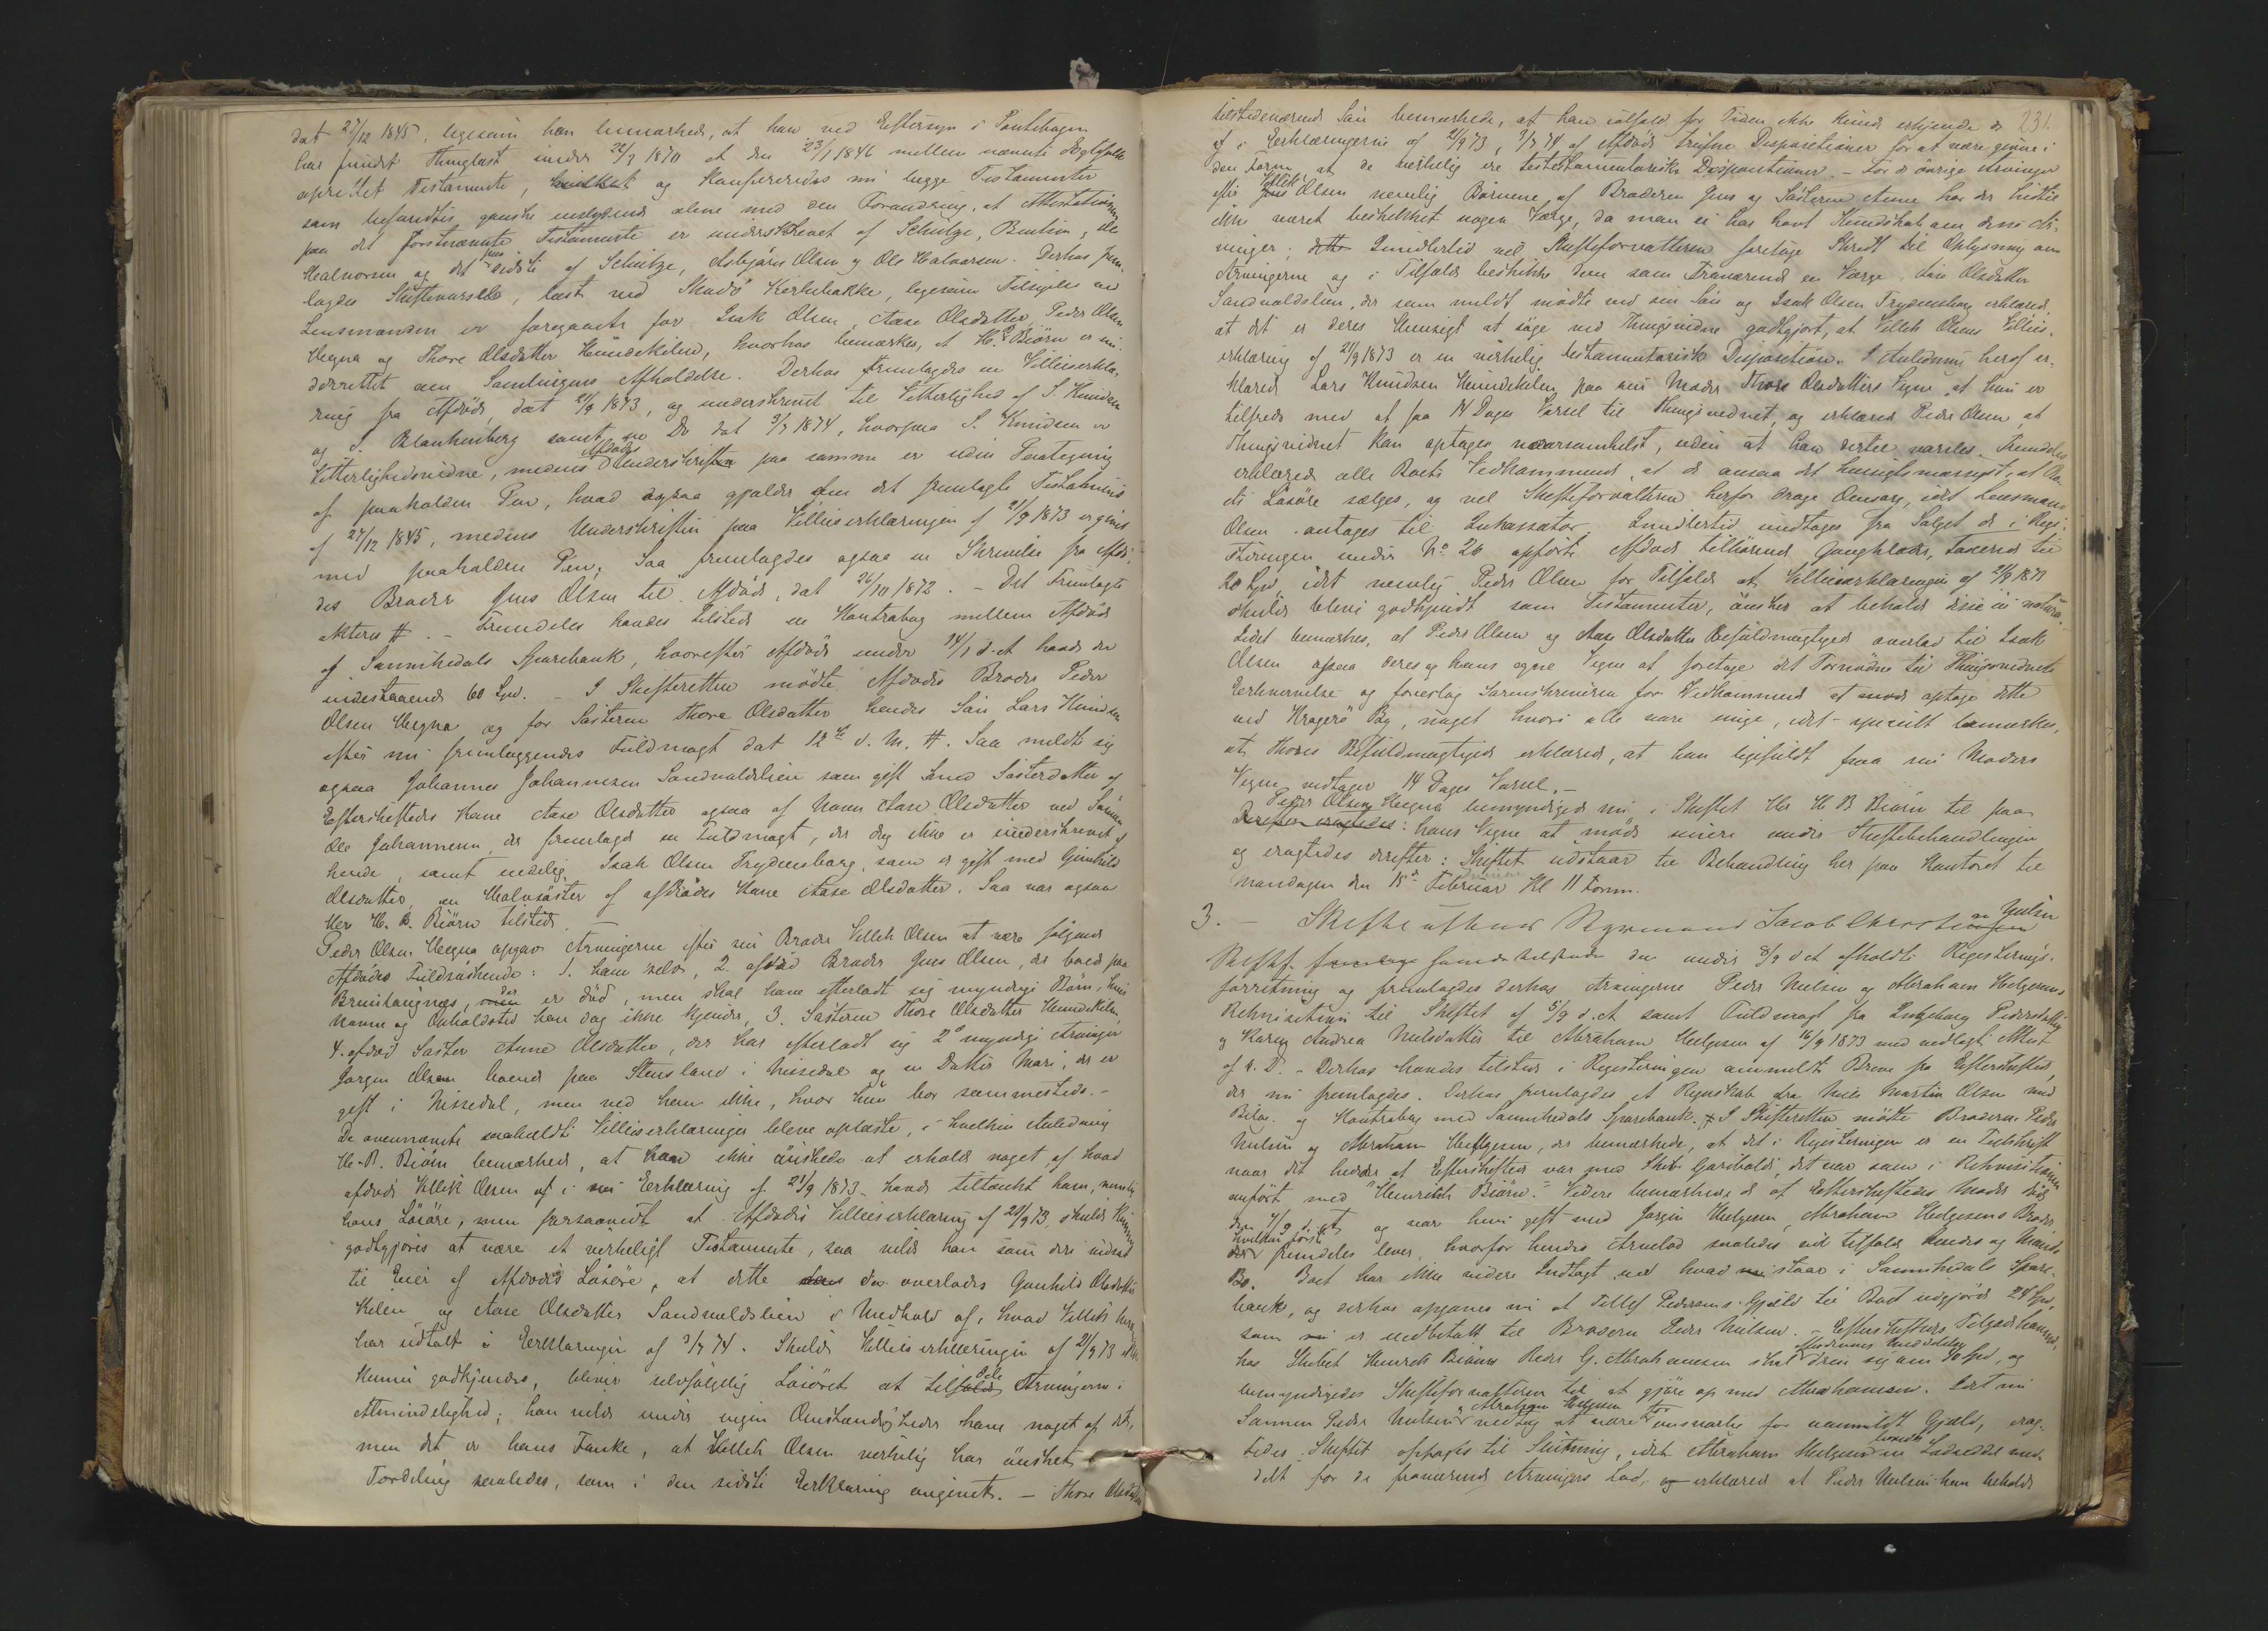 dat 27/12 1845, ligesom han bemærkede, at han ved Eftersyn i Pantebogen
har fundet Thinglæst under 22/3 1870 et den 23/1 1846 mellem nævnte Ægtefolk
oprettet Testamente, og konfereredes nu begge Testamenter
som befandtes ganske enslydende alene med den Forandring, at Attestationen
paa det førstnævnte Testamente er underskrevet af Schütze, Bentsen, Ole
Halvorsen og det paa sidste af Schütze, Asbjørn Olsen og Ole Halvorsen. Derhos frem-
lagdes Skiftevarsel, læst ved Skaadø Kirkebakke, ligesom Tilsigelse ved
Lensmanden er foregaaet for Isak Olsen, Aase Olsdatter, Peder Olsen
Hegna og Thore Olsdatter Hundekilen, hvorhos bemærkes, at H. B. Biørn er un-
derrettet om Samlingens Afholdelse. Derhos fremlagdes en Villieserklæ-
ring fra Afdøde, dat 21/9 1873, og underskrevet til Vitterlighed af S. Knudsen
og J. Blankenberg samt en Do dat 3/7 1874, hvorpaa S. Knudsen er
Vitterlighedsvidne, medens Afdødes Underskrift paa samme er uden Paategning
af paaholden Pen, hvad ogsaa gjælder om det fremlagte Testamente
af 27/12 1845, medens Underskriften paa Villieserklæringen af 21/9 1873 er given
med paaholden Pen. Saa fremlagdes ogsaa en Skrivelse fra Afdø-
des Broder Jens Olsen til Afdøde, dat 26/10 1872. – Det Fremlagte
akteres #. – Fremdeles havdes tilstede en Kontrabog mellem Afdøde
og Sannikedals Sparebank, hvorefter Afdøde under 14/1 d. A. havde der
indestaaende 60 Spd. – I Skifteretten mødte Afdødes Broder Peder
Olsen Hegna og for Søsteren Thore Olsdatter hendes Søn Lars Knudsen
efter nu fremlæggendes Fuldmagt dat 12te d. M. #. Saa meldte sig
ogsaa Johannes Johannesen Sandvaldslien som gift med Søsterdatter af
Efterskiftedes Kone Aase Olsdatter ogsaa af Navn Aase Olsdatter ved Sønnen
Ole Johannesen, der fremlagde en Fuldmagt, der dog ikke er underskrevet af
hende, samt endelig Isak Olsen Frydensborg, som er gift med Gunhild
Olsdatter, en Halvsøster af afdødes Kone Aase Olsdatter. Saa var ogsaa
Herr H. B. Biørn tilstede. –
Peder Olsen Hegna opgav Arvingerne efter sin Broder Vellek Olsen at være følgende
Afdødes Fuldsøskende: 1. ham selv, 2. afdød Broder Jens Olsen, der boede paa
Bruntangnæs, der er død, men skal have efterladt sig myndige Børn, hvis
Navne og Opholdssted han dog ikke kjender, 3. Søsteren Thore Olsdatter Hundekilen,
4. afdød Søster Anne Olsdatter, der har efterladt sig 2de myndige Arvinger
Jørgen Olsen boende paa Stensland i Nissedal og en Datter Mari, der er
gift i Nissedal, men ved han ikke, hvor hun bor sammesteds. –
De ovennævnte saakaldte Villieserklæringer bleve oplæste, i hvilken Anledning
H. B. Biørn bemærkede, at han ikke ønskede at erholde noget af hvad
afdøde Vellek Olsen af i sin Erklæring af 21/9 1873 havde tiltænkt ham, nemlig
hans Løsøre, men forsaavidt at Afdødes Villieserklæring af 21/9 73 skulde kunne
godtgjøres at være et virkeligt Testamente, saa vilde han som deri indsat
til Eier af Afdødes Løsøre, at dette da overlades Gunhild Olsdatter
Kilen og Aase Olsdatter Sandvaldslien i Medhold af, hvad Vellek
har udtalt i Erklæringen af 3/7 74. Skulde Villieserklæringen af 21/9 73 ikke
kunne godkjendes, bliver selvfølgelig Løsøret at tilfalde Arvingerne i
Almindelighed; han vilde under ingen Omstændigheder have noget af det,
men det er hans Tanke, at Vellek Olsen virkelig har ønsket
Fordeling saaledes, som i den sidste Erklæring angivet. – Thore Olsdatters
231.
tilstedeværende Søn bemærkede, at han ialfald for Tiden ikke kunde erkjende de
af i Erklæringerne af 21/9 73, 3/7 74 af Afdøde trufne Dispositioner for at være givne i
den Form, at de virkelig ere testamentariske Dispositioner. – For de øvrige Arvinger
efter Vellek Olsen nemlig Børnene af Broderen Jens og Søsteren Anne har der hidtil
ikke været beskikket nogen Værge, da man ei har havt Kundskab om disse Ar-
vinger; Imidlertid vil Skifteforvalteren foretage Skridt til Oplysning om
Arvingerne og i Tilfælde beskikke dem som fraværende en Værge. Aase Olsdatter
Sandvaldslien, der som meldt mødte ved sin Søn og Isak Olsen Frydensborg erklærede,
at det er deres Hensigt at søge ved Thingsvidne godtgjort, at Vellek Olsens Villies-
erklæring af 21/9 1873 er en virkelig testamentarisk Disposition. I Anledning heraf er-
klærede Lars Knudsen Hundekilen paa sin Moder Thore Olsdatters Vegne, at hun er
tilfreds med at faa 14 Dages Varsel til Thingsvidnet, og erklærede Peder Olsen, at
Thingsvidnet kan optages naarsomhelst, uden at han dertil varsles. Fremdeles
erklærede alle Boets Vedkommende, at de ansaa det hensigtsmæssigt, at Bo-
ets Løsøre sælges, og vil Skifteforvalteren herfor drage Omsorg, idet Lensmand
Olsen antages til Inkassator. Imidlertid undtages fra Salget de i Regi-
streringen under No 26 opførte Afdøde tilhørende Gangklæder, taxerede til
20 Spd, idet nemlig Peder Olsen for Tilfælde at Villieserklæringen af 21/9 1873
skulde blive godkjendt som Testamente, ønsker at beholde disse in natura.
Sidst bemærkes, at Peder Olsen og Aase Olsdatters Befuldmægtigede overlod til Isak
Olsen ogsaa paa deres og hans egne Vegne at foretage det Fornødne til Thingsvidnets
Erhvervelse og foreslog Sorenskriveren for Vedkommende at optage dette
ved Kragerø By, noget hvori alle vare enige, idet specielt bemærkes,
at Thores Befuldmægtigede erklærede, at han ligefuldt paa sin Moders
Vegne vedtager 14 Dages Varsel. –
Peder Olsen Hegna bemyndigede nu i Skiftet Hr H B Biørn til paa
hans Vegne at møde senere under Skiftebehandlingen
og eragtedes derefter: Skiftet udstaar til Behandling her paa Kontoret til
Mandagen den 15de Februar Kl 11 Form.
3. – Skifte efter Styrmand Jacob Christian Nielsen
Skiftef. den under 8/9 d A afholdte Registrerings-
forretning og fremlagdes derhos Arvingerne Peder Nielsen og Abraham Helgesens
Rekvisition til Skiftet af 5/9 d. A. samt Fuldmagt fra Ingeborg Pedersdatter
og Karen Andrea Nielsdatter til Abraham Helgesen af 16/9 1873 med vedlagt Attest
af s. D. – Derhos havdes tilstede i Registreringen anmeldte Breve fra Efterskiftede,
der nu fremlagdes. Derhos fremlagdes et Regnskab fra Niels Martin Olsen med
Bilag og Kontrabog med Sannikedals Sparebank. # I Skifteretten mødte Brødrene Peder
Nielsen og Abraham Helgesen, der bemærkede, at det i Registreringen er en Feilskrift
naar det hedder, at Efterskiftede var med Skib Garibaldi, det var som i Rekvisitionen
anført med "Henrich Biørn". Videre bemærkede de at Efterskiftedes Moder døde
den 4/9 d. A. og var hun gift med Jørgen Helgesen, Abraham Helgesens Broder,
hvilken først fremdeles lever, hvorfor hendes Arvelod saaledes vil tilfalde hendes og Mands
Bo. Boet har ikke videre Indtægt end hvad staar i Sannikedals Spare-
bank, og derhos opgaves nu at Tellef Pedersens Gjæld til Boet udgjorde 24 Spd,
som er indbetalt til Broderen Peder Nielsen. – Efterskiftedes Tilgodehavende
hos Skibet Henrich Biørns Reder G. Abrahamsen skal efter dennes Meddelelse dreie sig om 90 Spd, og
bemyndigedes Skifteforvalteren til at gjøre op med Abrahamsen. Idet nu
Sønnen Peder Nielsen og Abraham Helgesen vedtog at være ansvarlig for anmeldt Gjæld, erag-
tedes Skiftet optaget til Slutning, idet Abraham Helgesen Lodseddel med-
delt for de fraværende Arvingers Lod, og erklærede at Peder Nielsen kan beholde